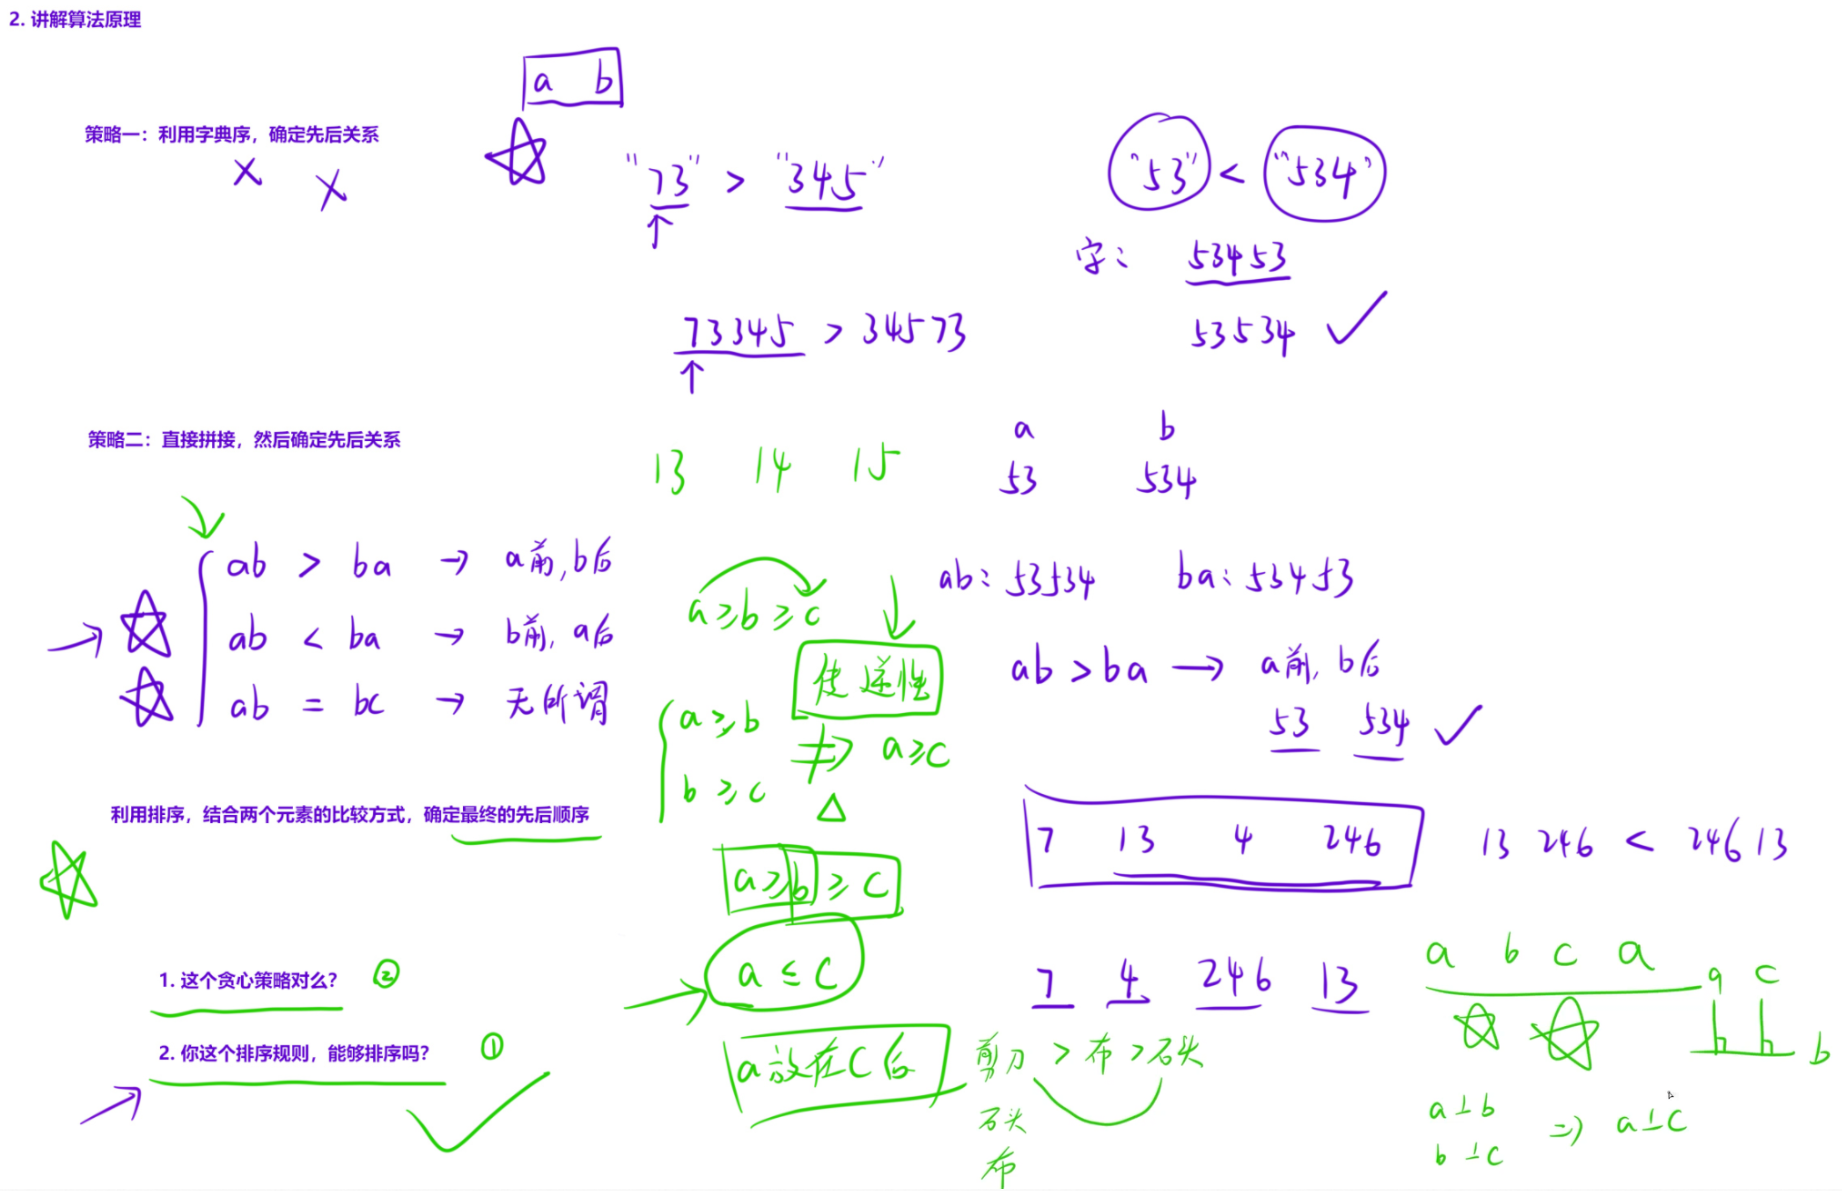 2. 讲解算法原理
a b
策略一：利用字典序，确定先后关系
"73" > "345"
"53" < "534"
字： 53453
53534
73345 > 34573
策略二：直接拼接，然后确定先后关系
13 14 15
a b
53 534
ab > ba → a前,b后
ab < ba → b前, a后
ab = bc → 无所谓
a≥b≥c
传递性
a≥b
b≥c
⇒ a≥c
ab：53534 ba：53453
ab>ba → a前, b后
53 534
利用排序，结合两个元素的比较方式，确定最终的先后顺序
7 13 4 246
13 246 < 246 13
a≥b≥c
a≤c
a放在c后
7 4 246 13
1. 这个贪心策略对么？ ②
2. 你这个排序规则，能够排序吗？ ①
剪刀 > 布 > 石头
石头
布
a b c a
a c
b
a⊥b
b⊥c
⇒ a⊥c